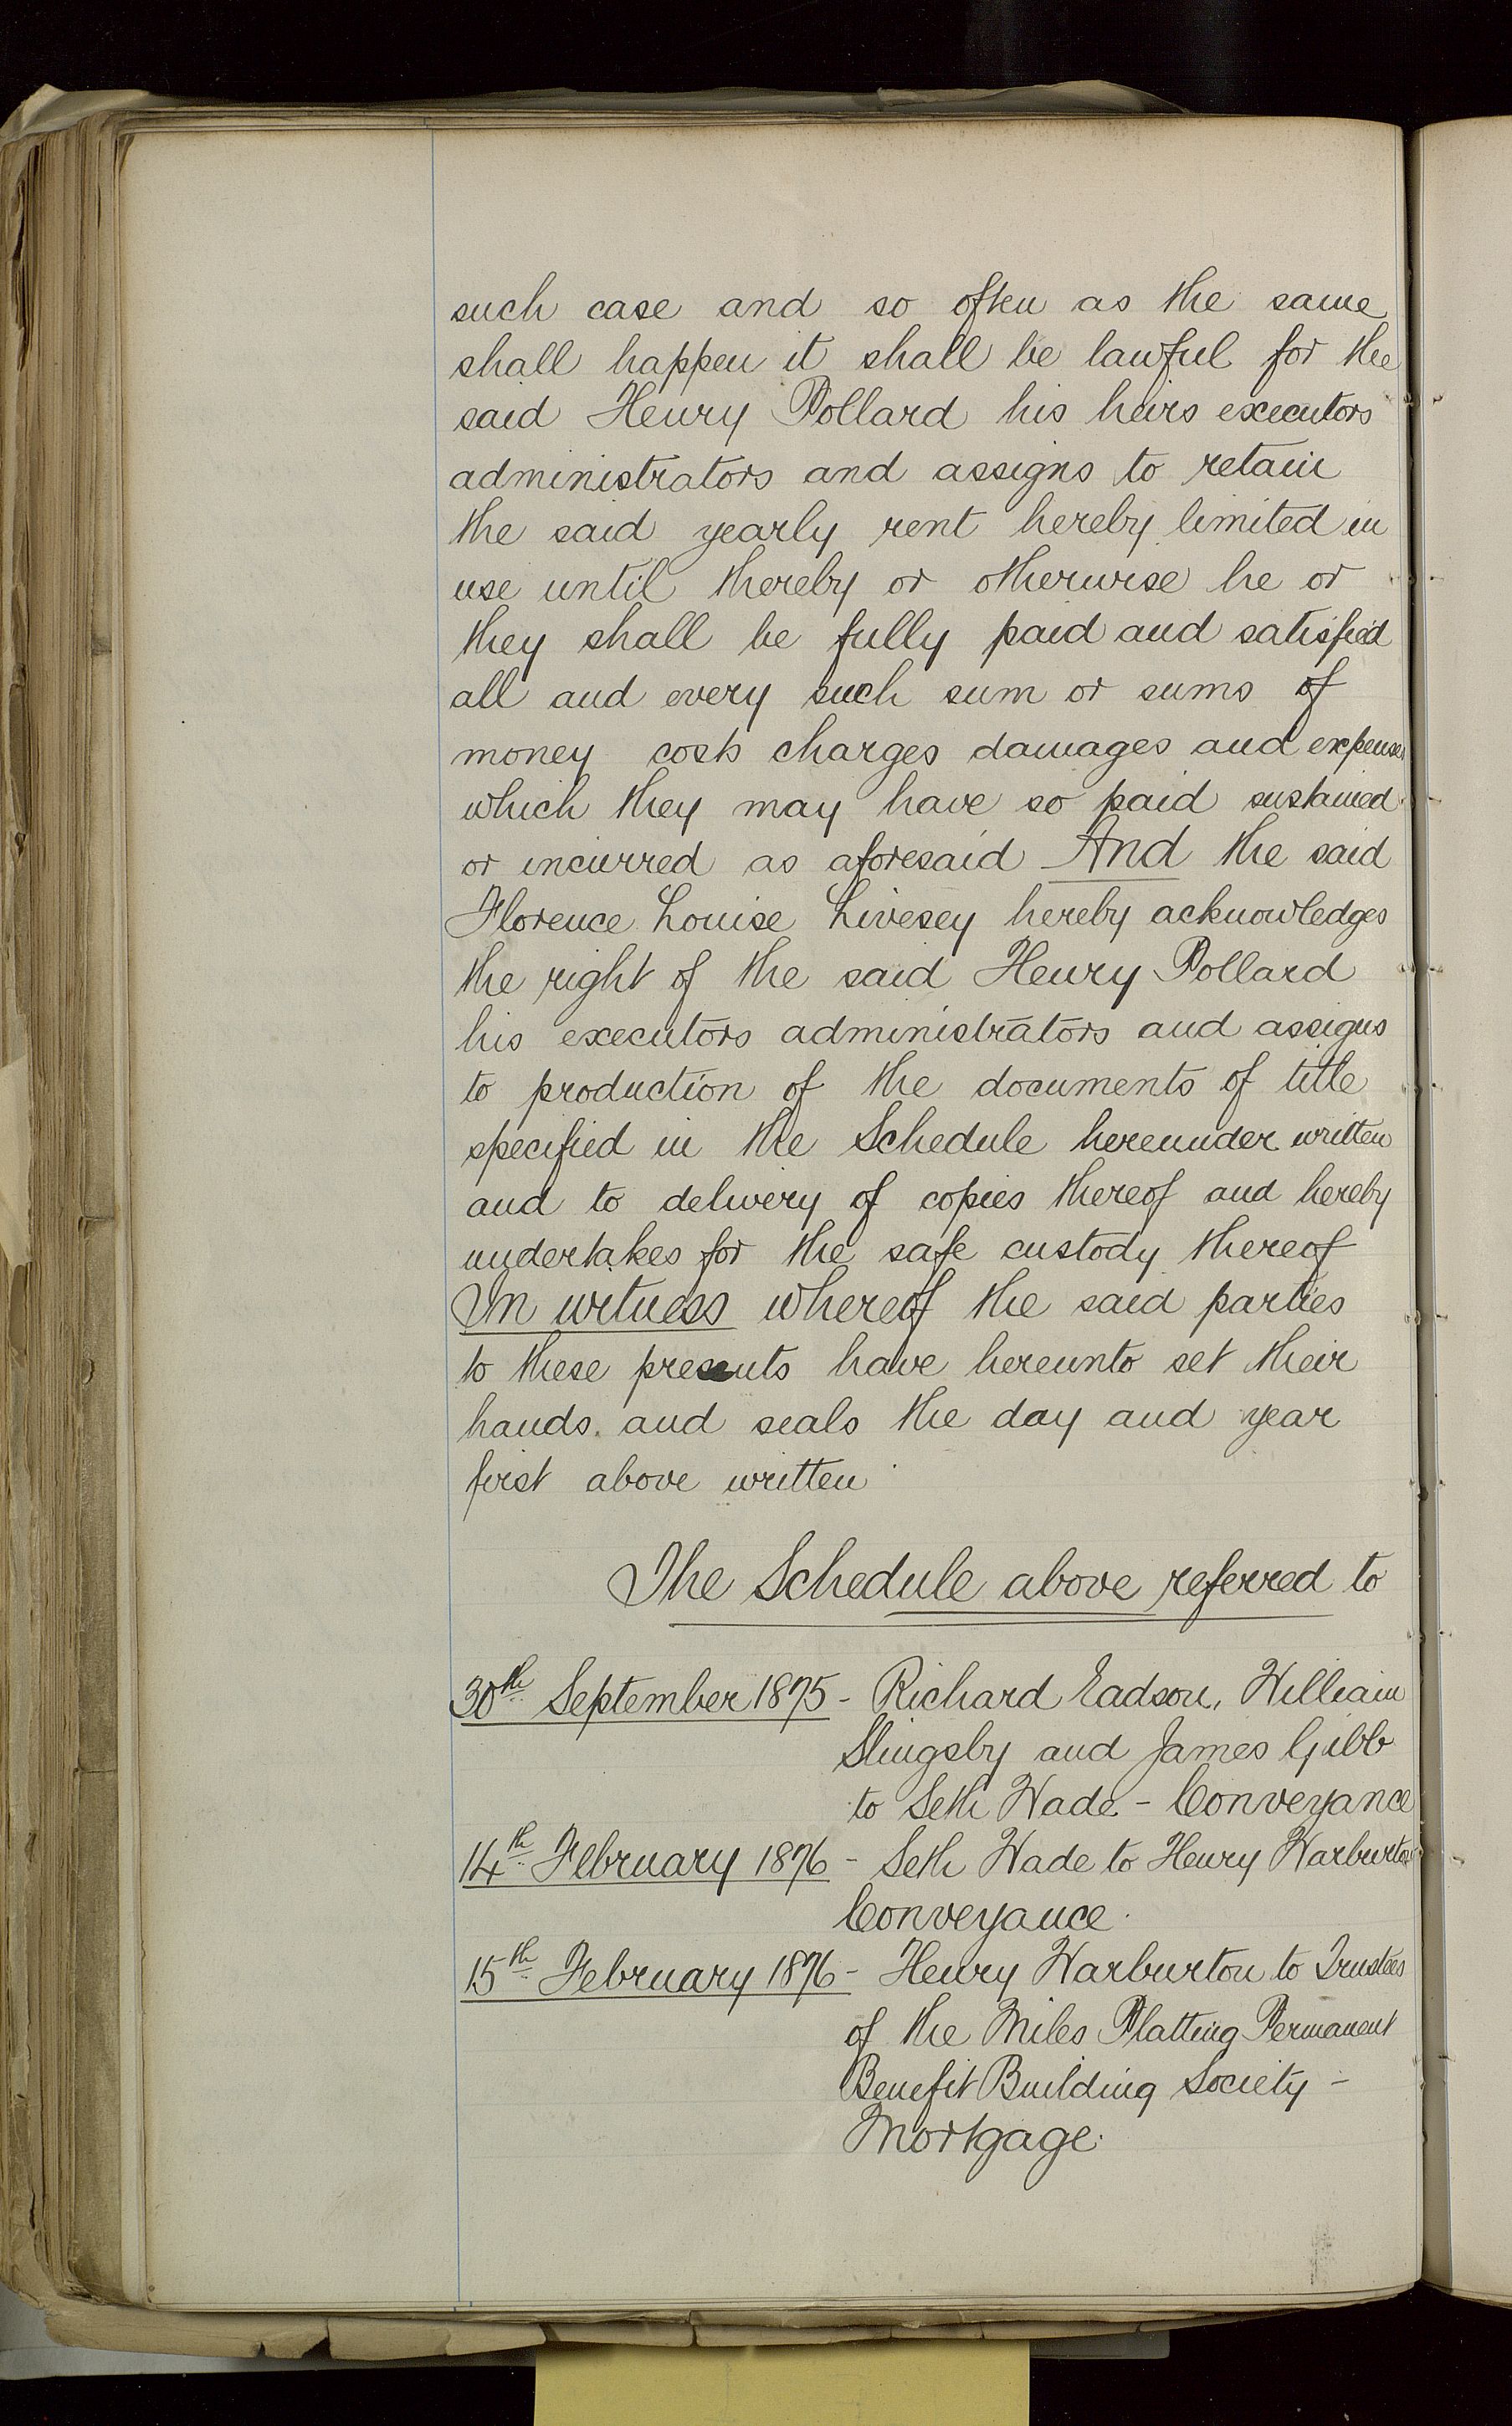 such case and so often as the same
shall happen it shall be lawful for the
said Henry Pollard his heirs executors
administrators and assigns to retain
the said yearly rent hereby limited in
use until thereby or otherwise he or
they shall be fully paid and satisfied
all and every such sum or sums of
money costs charges damages and expenses
which they may have so paid sustained
or incurred as aforesaid And the said
Florence Louise Livesey hereby acknowledges
the right of the said Henry Pollard
his executors administrators and assigns
to production of the documents of title
specified in the Schedule hereunder written
and to delivery of copies thereof and hereby
undertakes for the safe custody thereof
In witness whereof the said parties
to these presents have hereunto set their
hands and seals the day and year
first above written
The Schedule above referred to
30th September 1875 - Richard Eadson, William
Slingsby and James Gibb
to Seth Wade - Conveyance
14th February 1876 - Seth Wade to Henry Warburton
Conveyance.
15th February 1876 - Henry Warburton to Trustees
of the Miles Platting Permanent
Benefit Building Society -
Mortgage.